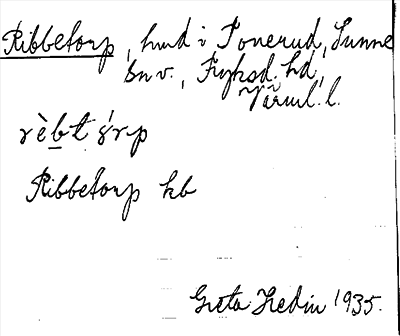 Ribbetorp, hmd i Tonerud, Sunne
sn v., Fryksd. hd,
Värml. l.
rèbt ý́rp
Ribbetorp kb
Greta Hedin 1935.